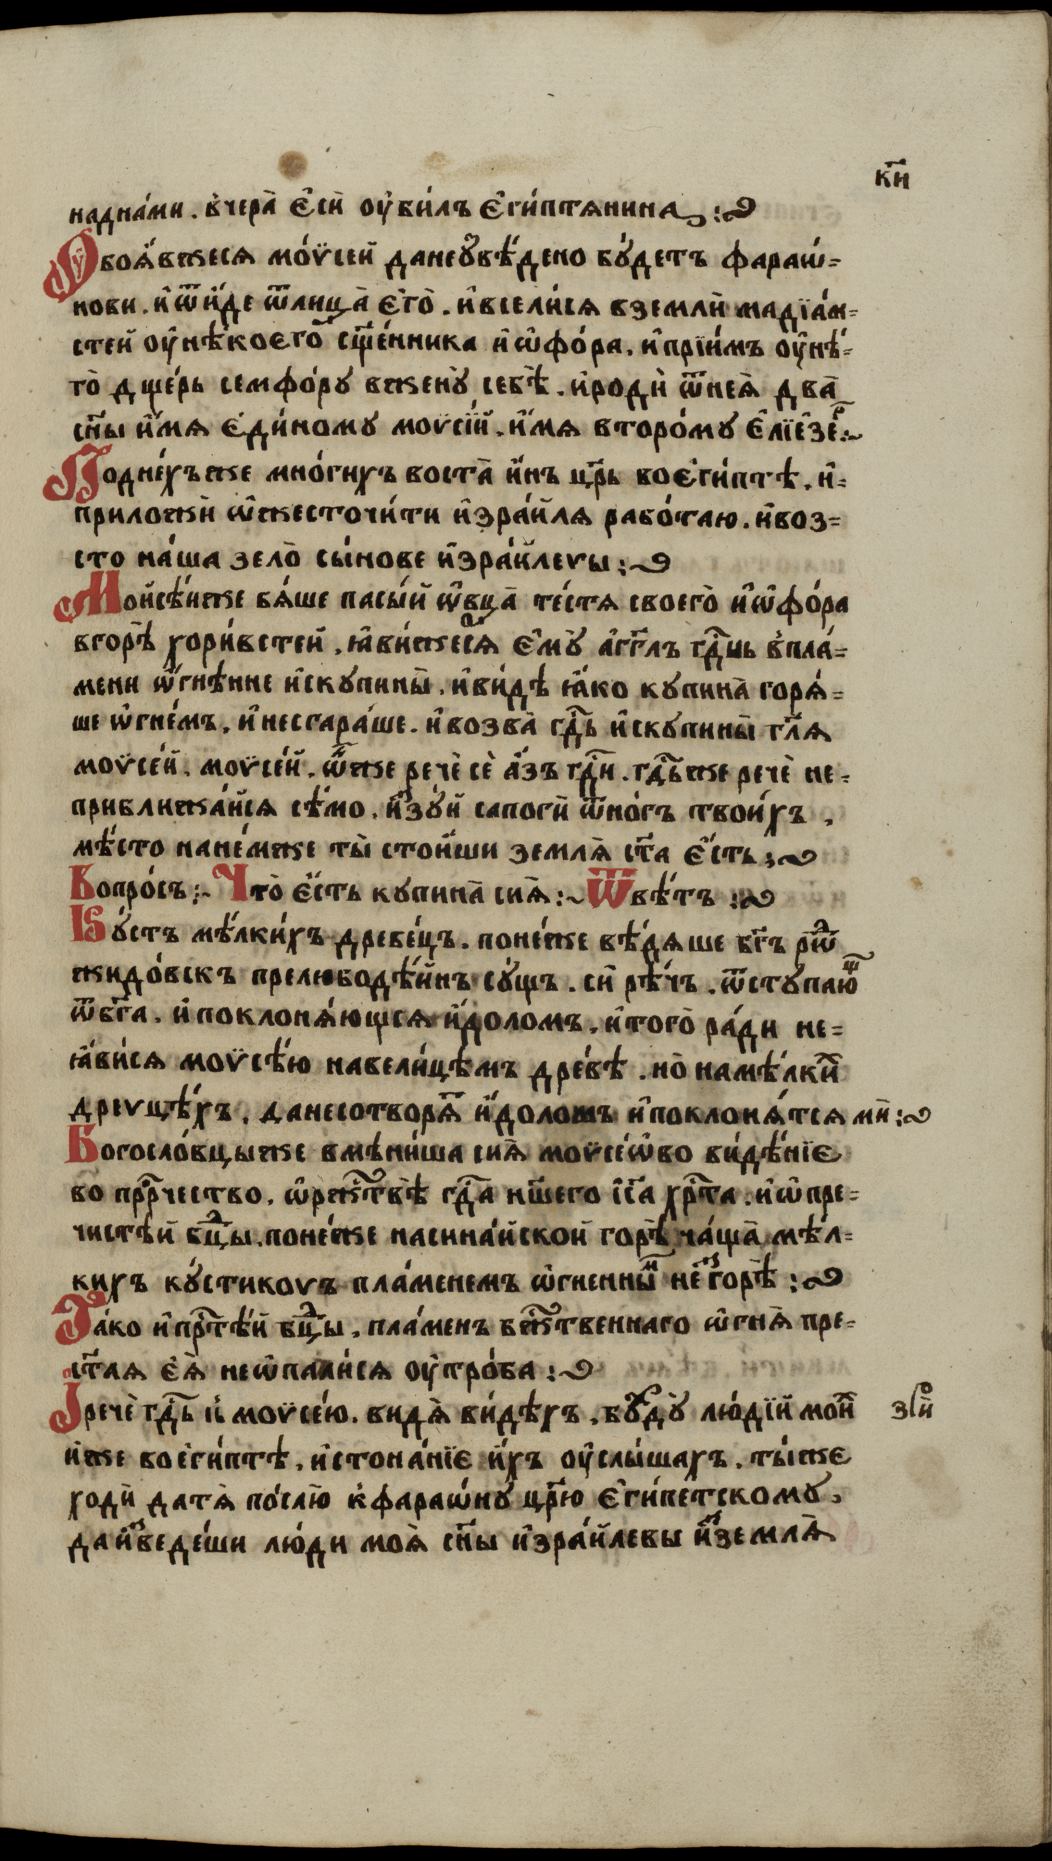 к҃и
наднáми . вчерà є҆сѝ оу҆би́лъ є҆ги́птянина :~
Убоя́вжеся мо́ѵсей данеꙋвѣ́дено бу́детъ фараѡ́=
нови . и҆ѿи́де ѿлица̀ є҆го̀ . и҆всели́ся вземлѝ мадїа́м=
стей оу҆нѣ́коего̀ сщ҃е́нника и҆ѡфо́ра . и҆прїи́мъ оу҆нѣ́=
го̀ дщерь семфо́ру вжену̀ себѣ̀ . и҆родѝ ѿнея̀ два̀
сн҃ы и҆́мя є҆ди́ному моѵсі́й . и҆́мя второ́му є҆лїе҆зе́р :~
Подне́хъже мно́гихъ воста̀ и҆́нъ цр҃ь воєги́птѣ . и҆=
приложѝ ѡ҆жесточи́ти и҆зра́йля рабо́таю . и҆воз=
стона́ша зело̀ сы́нове и҆зра́илевы :~
Мойсѣ́йже бя́ше пасы́й ѡ҆вца̀ те́стя своего̀ и҆ѡфо́ра
вгорѣ̀ хори́встей . ꙗ҆ви́жеся є҆му̀ а҆гг҃лъ гд҃нь впла́=
мени ѡ҆́гнѣнне и҆скупины̀ . и҆ви́дѣ ꙗ҆́ко купина̀ горя́=
ше ѡ҆гне́мъ . и҆несгара́ше . и҆возва̀ гд҃ь и҆скупины̀ гл҃я
моѵсе́й . моѵсе́й . ѻ҆́нже речѐ сѐ а҆́зъ гд҃и . гд҃ьже речѐ не=
приближа́йся сѣ́мо . и҆зу́й сапогѝ ѿно́гъ твои́хъ ,
мѣ́сто нане́мже ты̀ стои́ши земля̀ ст҃а є҆́сть :~
Вопро́съ :~ Что̀ є҆́сть купина̀ сия̀ :~ Ѿвѣ́тъ :~
Ку́стъ мѣ́лкихъ древе́цъ . поне́же вѣ́дяше бг҃ъ ро́дъ
жидо́вскъ прелюбодѣ́йнъ су́щъ . сѝ рѣ́чь . ѿступаю́щ
ѿбг҃а . и҆ поклоня́ющся и҆́доломъ . и҆того̀ ра́ди не=
ꙗ҆ви́ся моѵсѣ́ю навели́цѣмъ дре́вѣ . но̀ намѣ́лких
древцѣ́хъ . данесотворя́т и҆́доломъ и҆поклоня́тся мѝ :~
Богосло́вцыже вмѣни́ша сия̀ моѵсе́ѡво ви́дѣ́нїе
во прⷪ҇рчество . ѡ҆рⷤ҇ствѣ̀ гд҃а нш҃его і҆с҃а хрⷭ҇та . и҆ѡпре=
чистѣ́й бц҃ы . поне́же насина́йской горѣ̀ ча́ща мѣ́л=
кихъ ку́стиковъ пла́менемъ ѡ҆́гненным не҆згорѣ̀ :~
Та́ко и҆прⷭ҇тѣ́й бц҃ы . пла́менъ бж҃твеннаго ѡ҆гня̀ пре=
ст҃ая є҆я̀ неѡпали́ся оу҆тро́ба :~
І҆речѐ гд҃ь к̀ моѵсе́ю . видя̀ ви́дѣхъ . бѣ́ду̀ лю́дїй мои́х
з҃ѝ
и҆́же воє҆ги́птѣ . и҆стона́нїе и҆́хъ оу҆слы́шахъ . ты́же
ходѝ датя̀ по́слю̀ кфараѡ́ну цр҃ю є҆ги́петскому .
даи҆зведе́ши лю́ди моя̀ сн҃ы и҆зра́йлевы и҆зземля̀